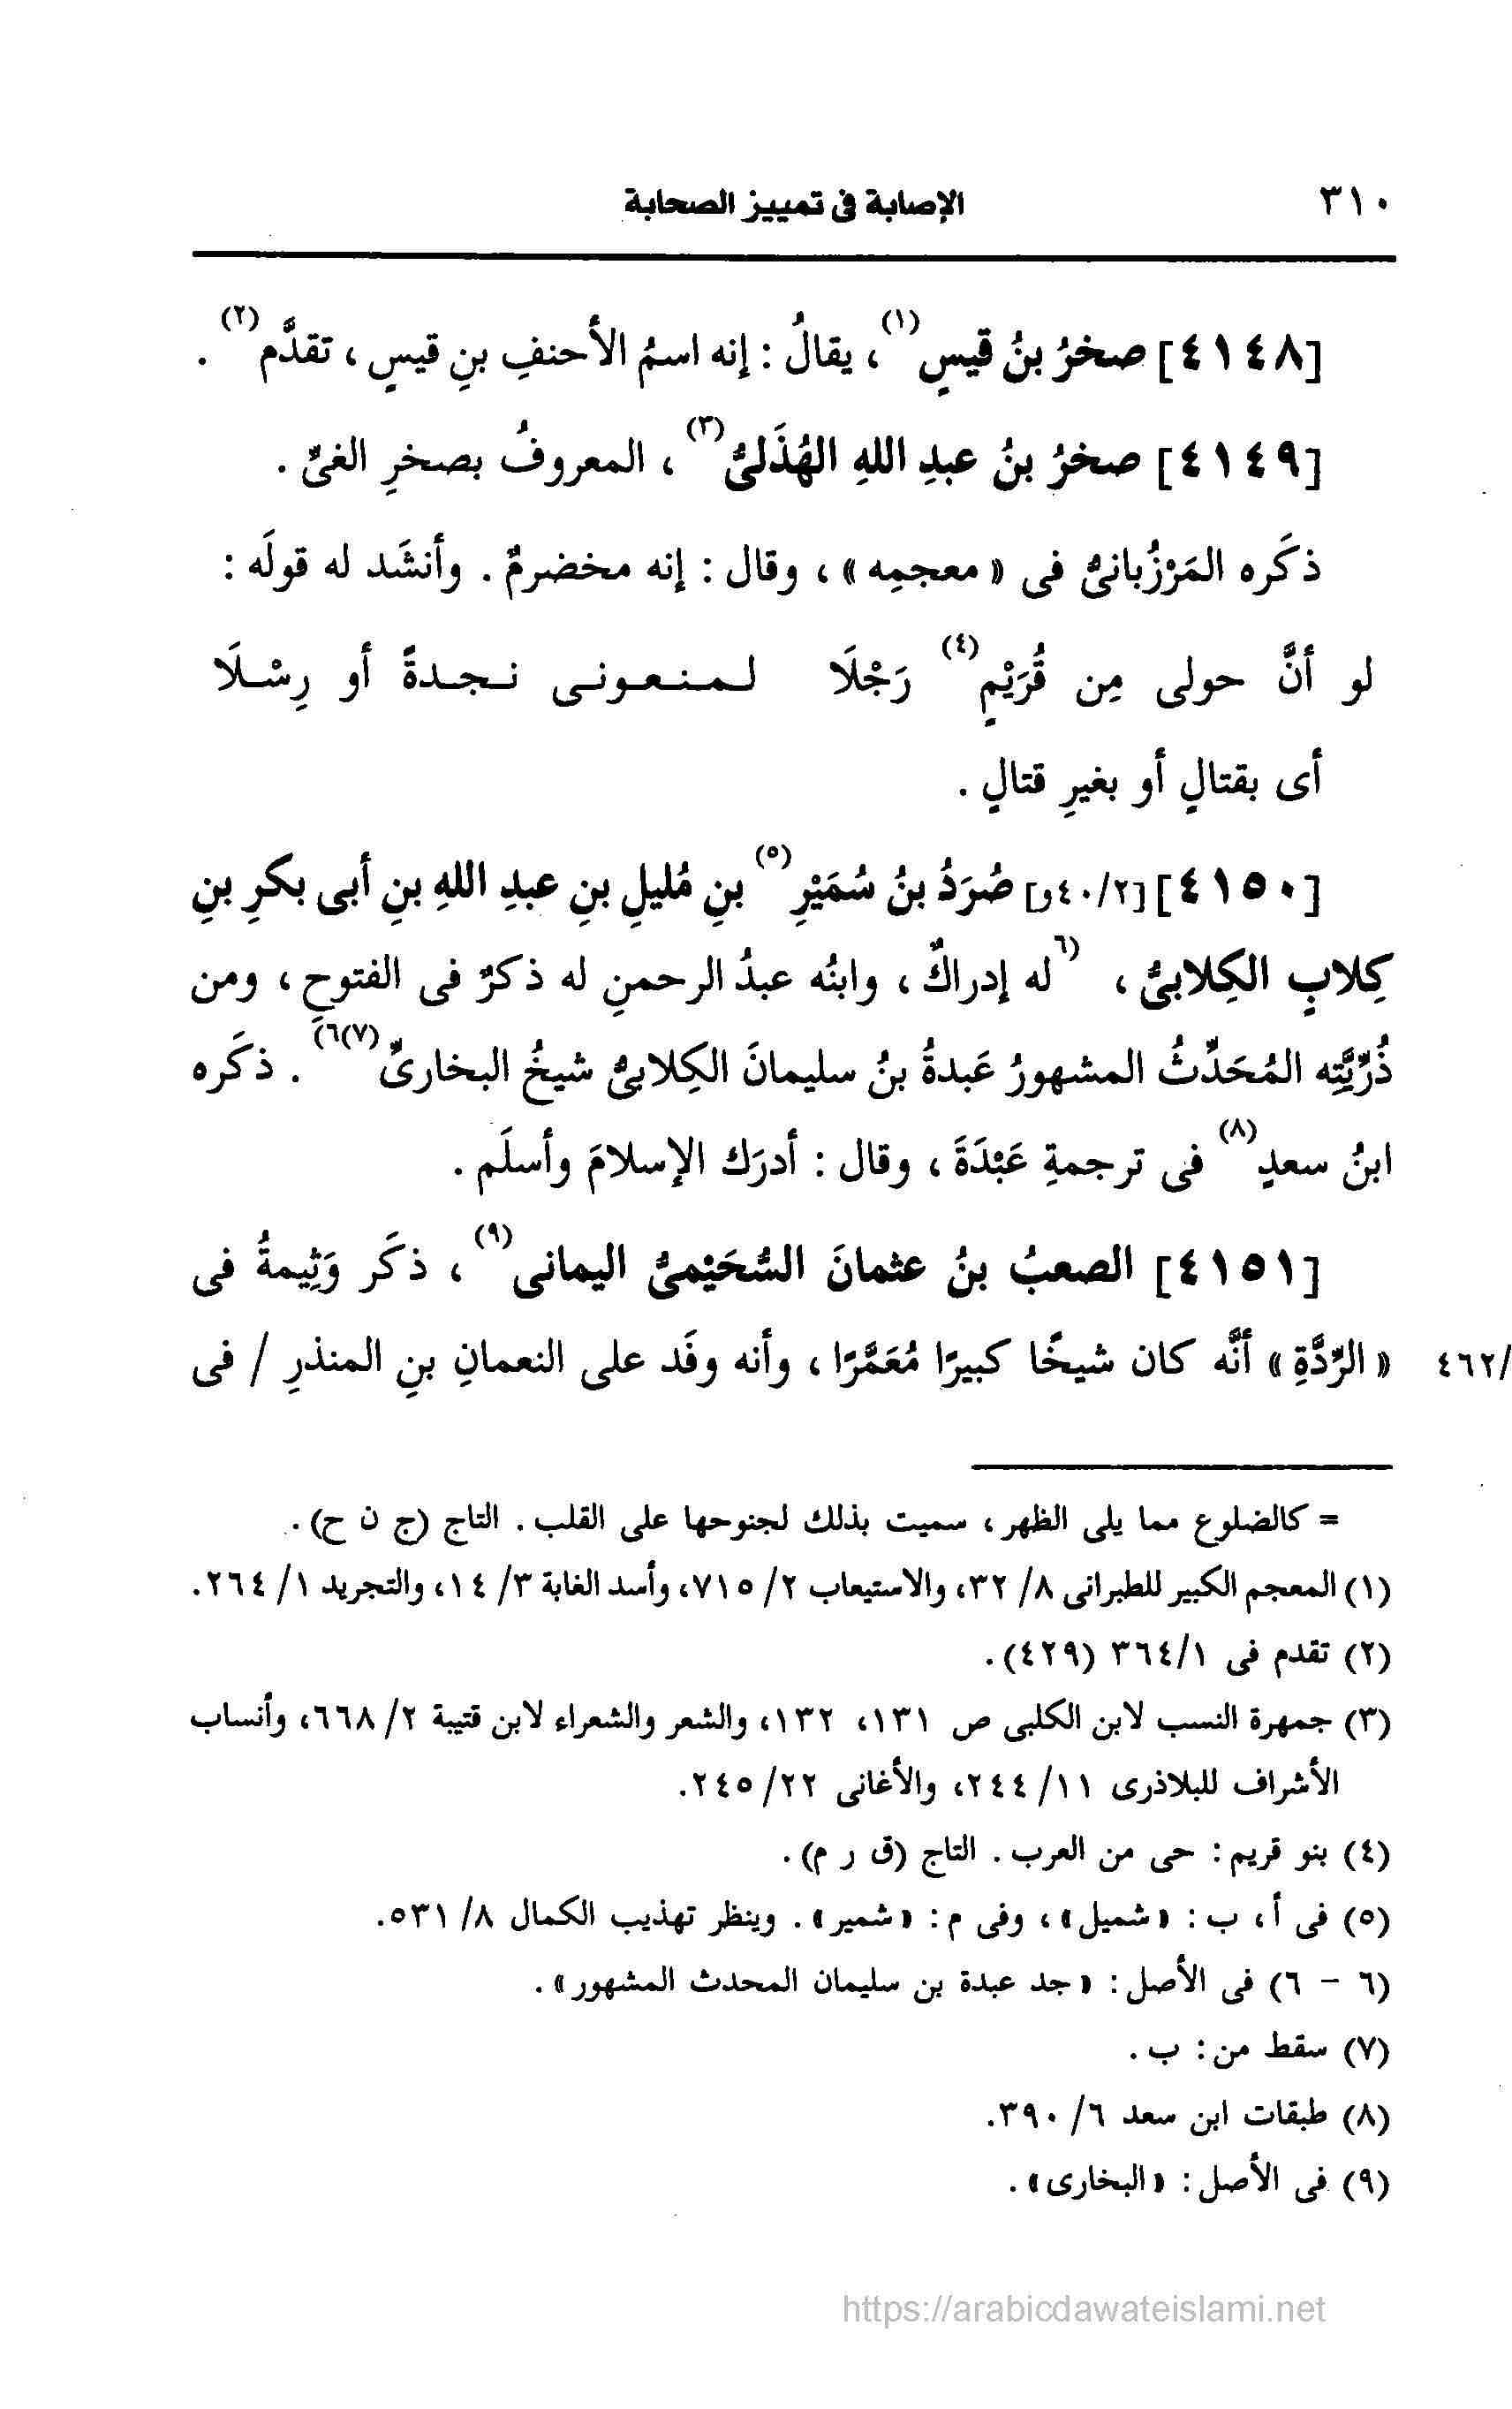 ٣١٠ الإصابة فى تمييز الصحابة
[٤١٤٨] صخرُ بنُ قيسٍ(١)، يقالُ : إنه اسمُ الأحنفِ بنِ قيسٍ ، تقدَّم(٢) .
[٤١٤٩] صخرُ بنُ عبدِ اللهِ الهُذَلىُّ(٣) ، المعروفُ بصخرِ الغىِّ .
ذكَره المَرْزُبانىُّ فى « معجمِه » ، وقال : إنه مخضرمٌ . وأنشَد له قولَه :
لو أنَّ حولى مِن قُرَيْمٍ(٤) رَجْلَا لـمـنـعـونـى نـجـدةً أو رِسْـلَا
أى بقتالٍ أو بغيرِ قتالٍ .
[٤١٥٠] [٢/ ٤٠و] صُرَدُ بنُ سُمَيْرِ(٥) بنِ مُليلِ بنِ عبدِ اللهِ بنِ أبى بكرِ بنِ
كِلابٍ الكِلابىُّ ، (٦له إدراكٌ ، وابنُه عبدُ الرحمنِ له ذكرٌ فى الفتوحِ ، ومن
ذُرِّيَّتِه المُحَدِّثُ المشهورُ عَبدةُ بنُ سليمانَ الكِلابىُّ شيخُ البخارىِّ(٧)٦) . ذكَره
ابنُ سعدٍ(٨) فى ترجمةِ عَبْدَةَ ، وقال : أدرَك الإسلامَ وأسلَم .
[٤١٥١] الصعبُ بنُ عثمانَ السُّحَيْمىُّ اليمانى(٩) ، ذكَر وَثِيمةُ فى
« الرِّدَّةِ » أنَّه كان شيخًا كبيرًا مُعَمَّرًا ، وأنه وفَد على النعمانِ بنِ المنذرِ / فى ٤٦٢/
= كالضلوع مما يلى الظهر ، سميت بذلك لجنوحها على القلب . التاج (ج ن ح) .
(١) المعجم الكبير للطبرانى ٨/ ٣٢، والاستيعاب ٢/ ٧١٥، وأسد الغابة ٣/ ١٤، والتجريد ١/ ٢٦٤.
(٢) تقدم فى ٣٦٤/١ (٤٢٩) .
(٣) جمهرة النسب لابن الكلبى ص ١٣١، ١٣٢، والشعر والشعراء لابن قتيبة ٢/ ٦٦٨، وأنساب
الأشراف للبلاذرى ١١/ ٢٤٤، والأغانى ٢٢/ ٢٤٥.
(٤) بنو قريم : حى من العرب . التاج (ق ر م) .
(٥) فى أ، ب : «شميل» ، وفى م : «شمير» . وينظر تهذيب الكمال ٨/ ٥٣١.
(٦ - ٦) فى الأصل : «جد عبدة بن سليمان المحدث المشهور» .
(٧) سقط من : ب .
(٨) طبقات ابن سعد ٦/ ٣٩٠.
(٩) فى الأصل : «البخارى» .
https://arabicdawateislami.net